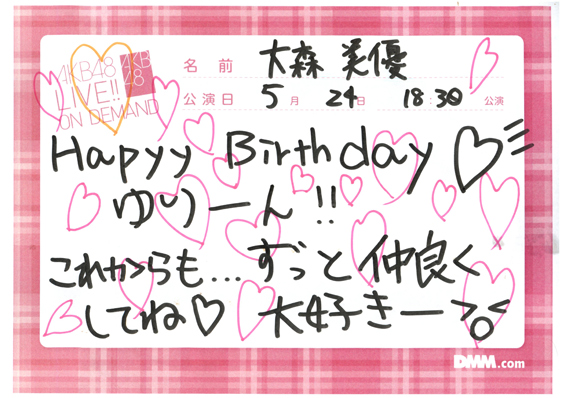 AKB48
LIVE!!
ON DEMAND
AKB
48
名前 大森 美優
公演日 5月 24日 18:30 公演
Hapyy Birthday♡
ゆりーん!!
これからも...ずっと仲良く
してね♡ 大好きー>o<
DMM.com